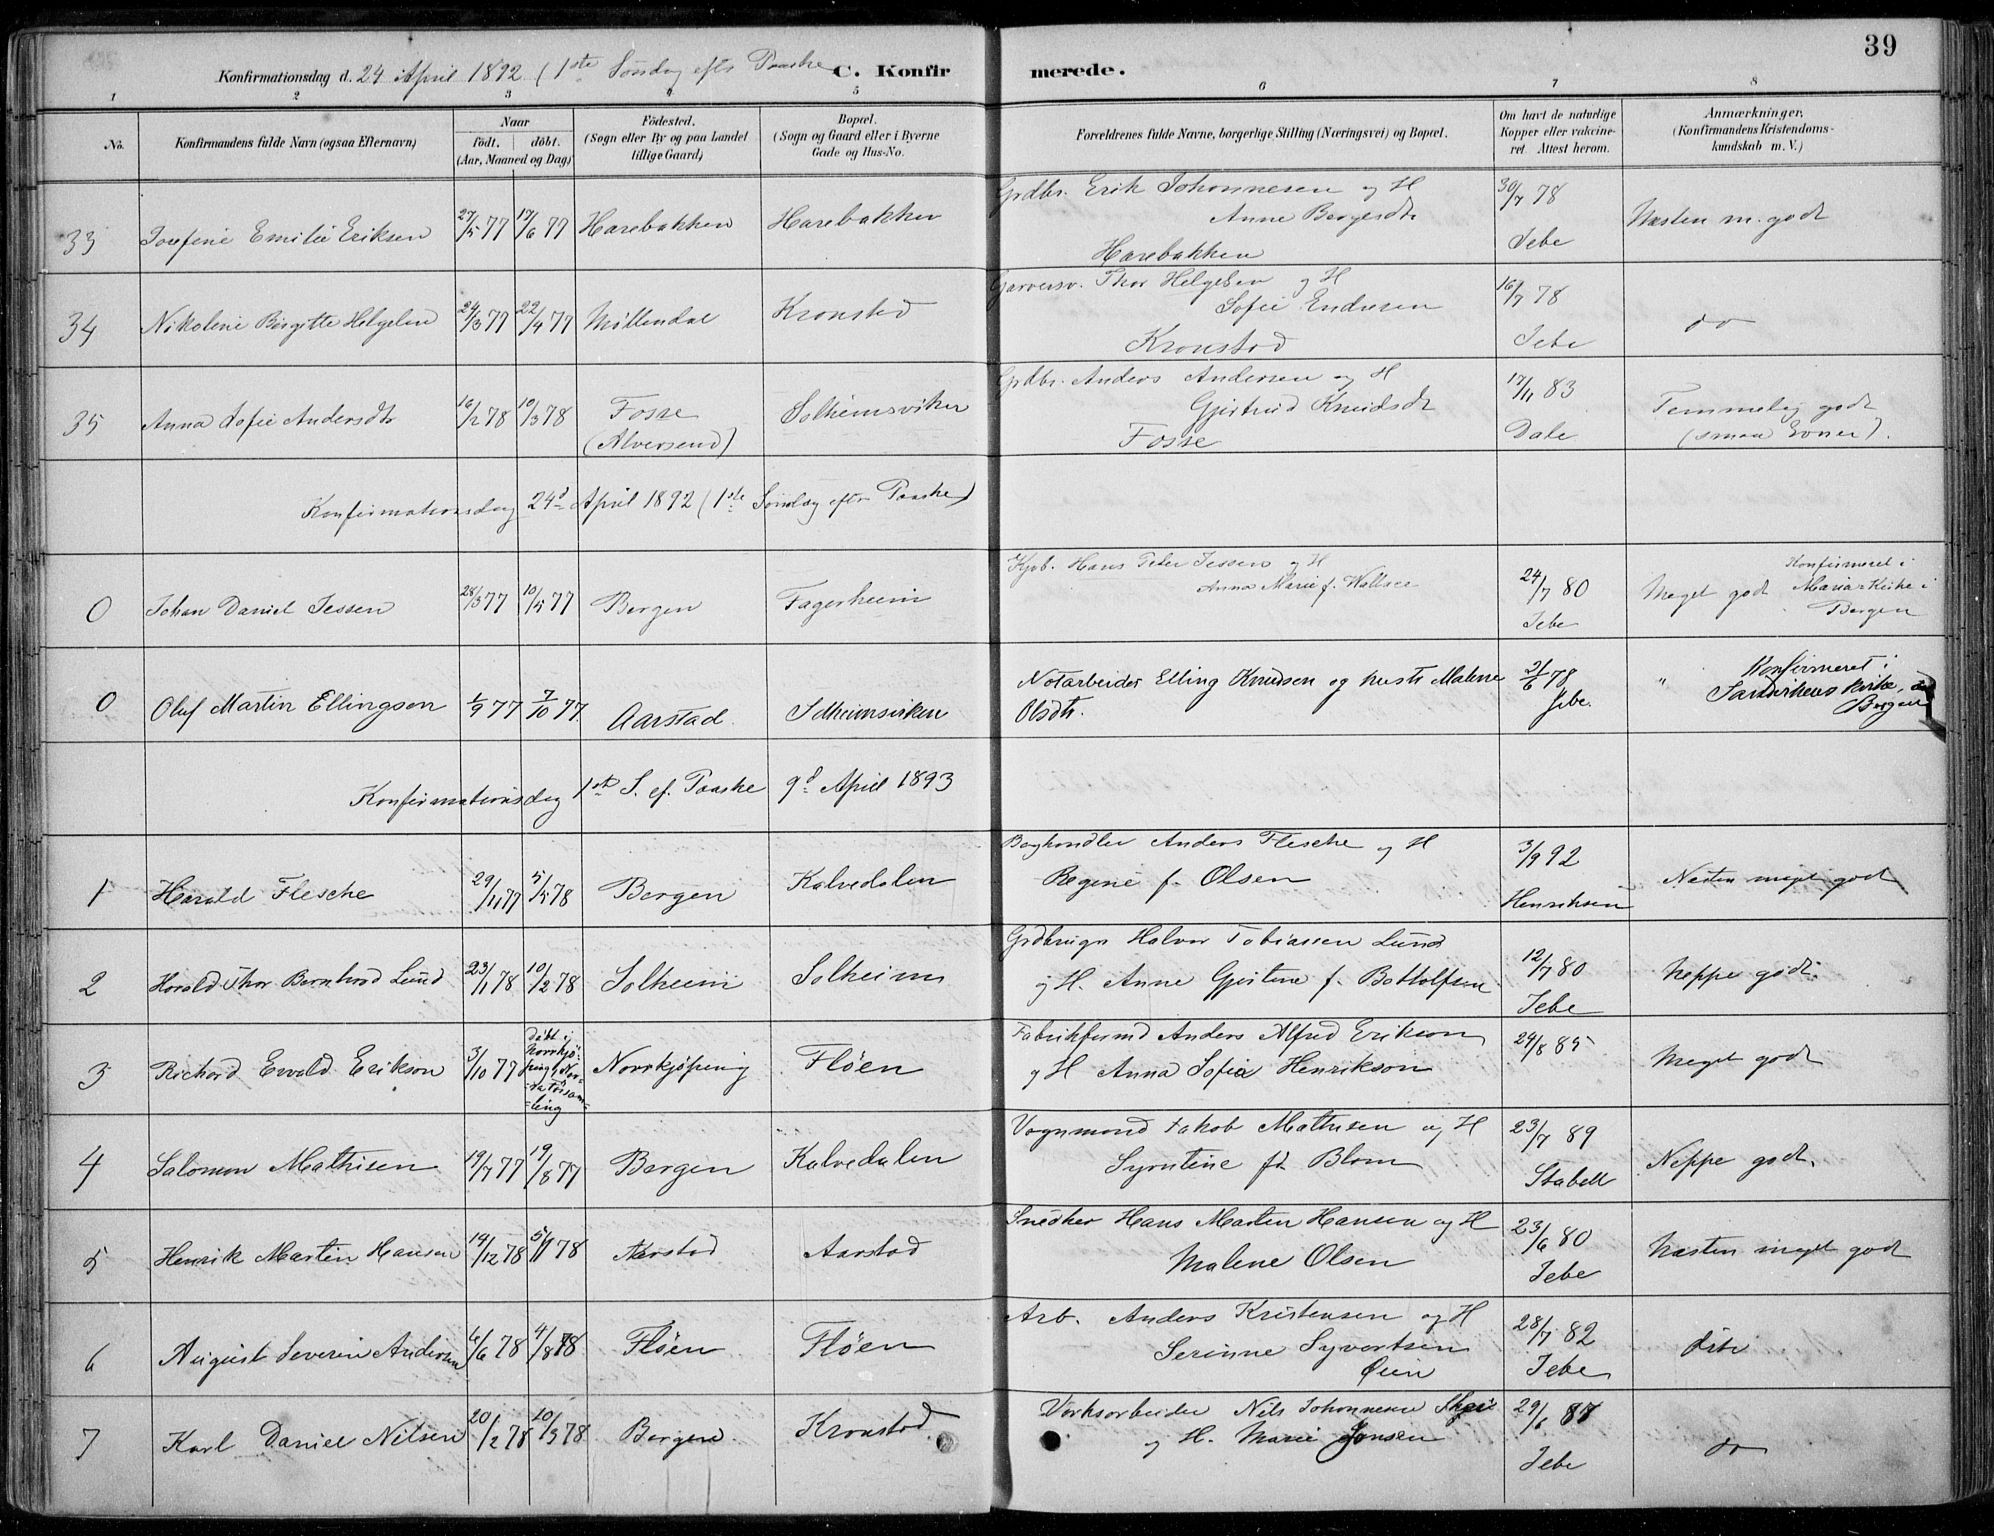 39
Konfirmationsdag d. 24 April 1892 (1ste Søndag eftr Paaske C. Konfirmerede.
1 2 3 4 5 6 7 8
No. Konfirmandens fulde Navn (ogsaa Efternavn) Naar födt. döbt. (Aar, Maaned og Dag) Födested. (Sogn eller By og paa Landet tillige Gaard) Bopæl. (Sogn og Gaard eller i Byerne Gade og Hus-No. Forældrenes fulde Navne, borgerlige Stilling (Næringsvei) og Bopæl. Om havt de naturlige Kopper eller vakcineret Attest herom. Anmærkninger. (Konfirmandens Kristendomskundskab m. V.)
33 Josefine Emilie Eriksen 27/5 77 17/6 77 Harebakken Harebakken Grdbr. Erik Johannesen og H
Anne Bergesdt
Harebakken 30/7 78 Jebe Næsten m. godt
34 Nikoline Birgitte Helgesen 24/3 77 22/4 77 Møllendal Kronstad Garversv. Thor Helgesen og H
Sofie Endresen
Kronstad 16/7 78 Jebe do
35 Anna Sofie Andersdtr 16/2 78 10/3 78 Fosse (Alversund) Solheimsviken Grdbr. Anders Andersen og H
Gjertrud Knudsdt
Fosse 17/11 83 Dale Temmelig godt (smaa Evner).
Konfirmationsdag 24d April 1892 (1ste Søndag efter Paaske)
0 Johan Daniel Jessen 28/3 77 10/5 77 Bergen Fagerheim Kjøb. Hans Peter Jessen og H
Anna Marie f. Wallace 24/7 80 Jebe Meget god Konfirmeret i Maria Kirke i Bergen
0 Oluf Martin Ellingsen 1/9 77 7/10 77 Aarstad. Solheimsviken Notarbeider Elling Knudsen og hustr Malene
Olsdtr. 21/6 78 Jebe. " Konfirmeret i Sandvikens kirke, Bergen
Konfirmationsdag 1ste S. ef. Paaske 9d April 1893
1 Harald Flesche 29/11 77 5/5 78 Bergen Kalvedalen Boghandler Anders Flesche og H
Regine f. Olsen 3/9 92 Henriksen Næsten meget godt
2 Harald Thor Bernhard Lund 23/1 78 10/2 78 Solheim Solheim Grdbruger Halvor Tobiassen Lund
og H. Anne Gjertine f. Bottolfsen 12/7 80 Jebe Neppe godt.
3 Richard Ewald Erikson 3/10 77 Døbt i Norrkjöping Norrkjøping Fløen Fabrikformd Anders Alfred Erikson
og H Anna Sofia Henrikson 24/8 85 Meget godt
4 Salomon Mathisen 19/7 77 19/8 77 Bergen Kalvedalen Vognmand Jakob Mathisen og H
f. Blom 23/7 89 Stabell Neppe godt.
5 Henrik Martin Hansen 19/12 78 78 Aarstad Aarstad Snedker Hans Martin Hansen og H
Malene Olsen 23/6 80 Jebe Næsten meget godt
6 August Severin Andersen 6/6 78 4/8 78 Fløen Fløen Arb. Anders Kristensen og H
Serinne Syvertsen
Øien 28/7 82 Jebe dito
7 Karl Daniel Nilsen 20/2 78 10/3 78 Bergen Kronstad Verksarbeider Nils Johannesen
og H. Marie Jonsen 29/6 87 Jebe do